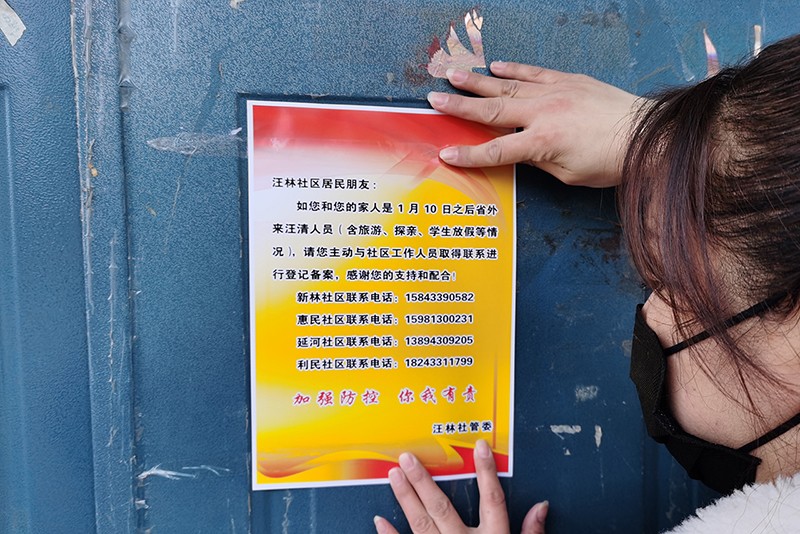 汪林社区居民朋友：
如您和您的家人是1月10日之后省外
来汪清人员（含旅游、探亲、学生放假等情
况），请您主动与社区工作人员取得联系进
行登记备案，感谢您的支持和配合！
新林社区联系电话：15843390582
惠民社区联系电话：15981300231
延河社区联系电话：13894309205
利民社区联系电话：18243311799
加强防控 你我有责
汪林社管委